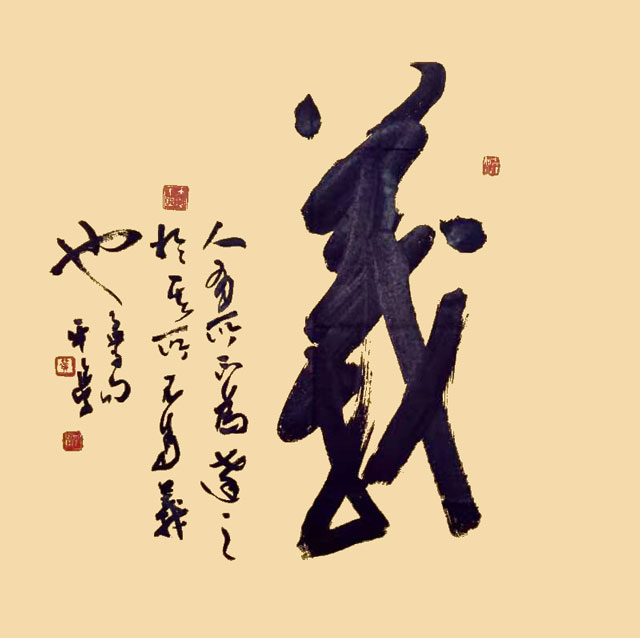 義
人有所不為達之
於其所不為義
也